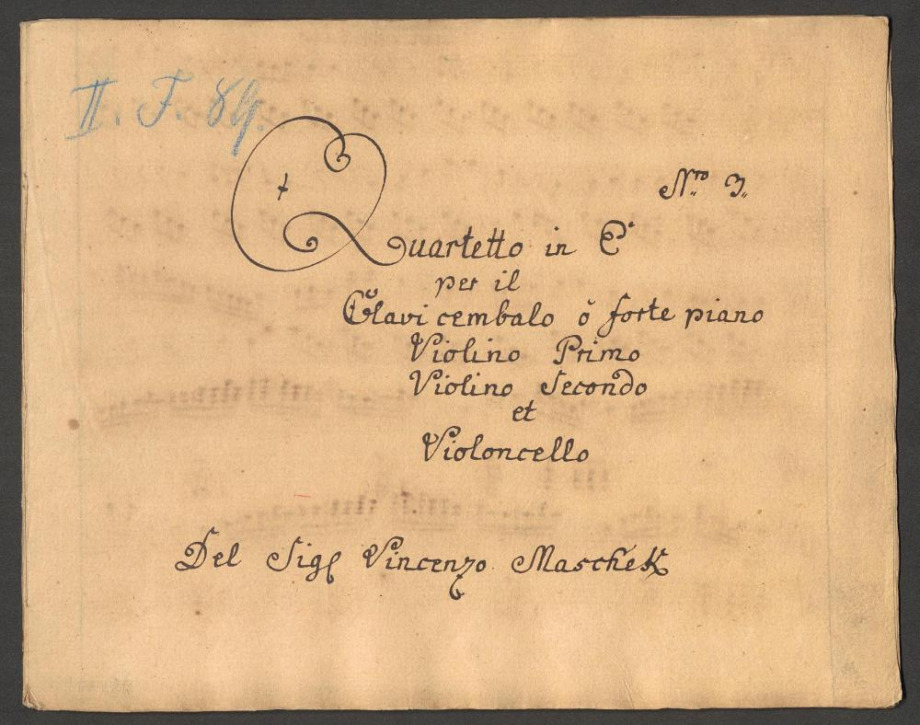 II. F. 84.
Nro 3.
Quartetto in C
per il
Clavi cembalo ò forte piano
Violino Primo
Violino Secondo
et
Violoncello
Del Sigl Vincenzo Maschek